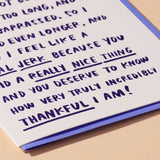 TOO LONG, AND
EMBARRASSED, TO
EVEN LONGER, AND
I FEEL LIKE A
JERK BECAUSE YOU
DID A REALLY NICE THING
AND YOU DESERVE TO KNOW
HOW VERY TRULY INCREDIBLY
THANKFUL I AM!